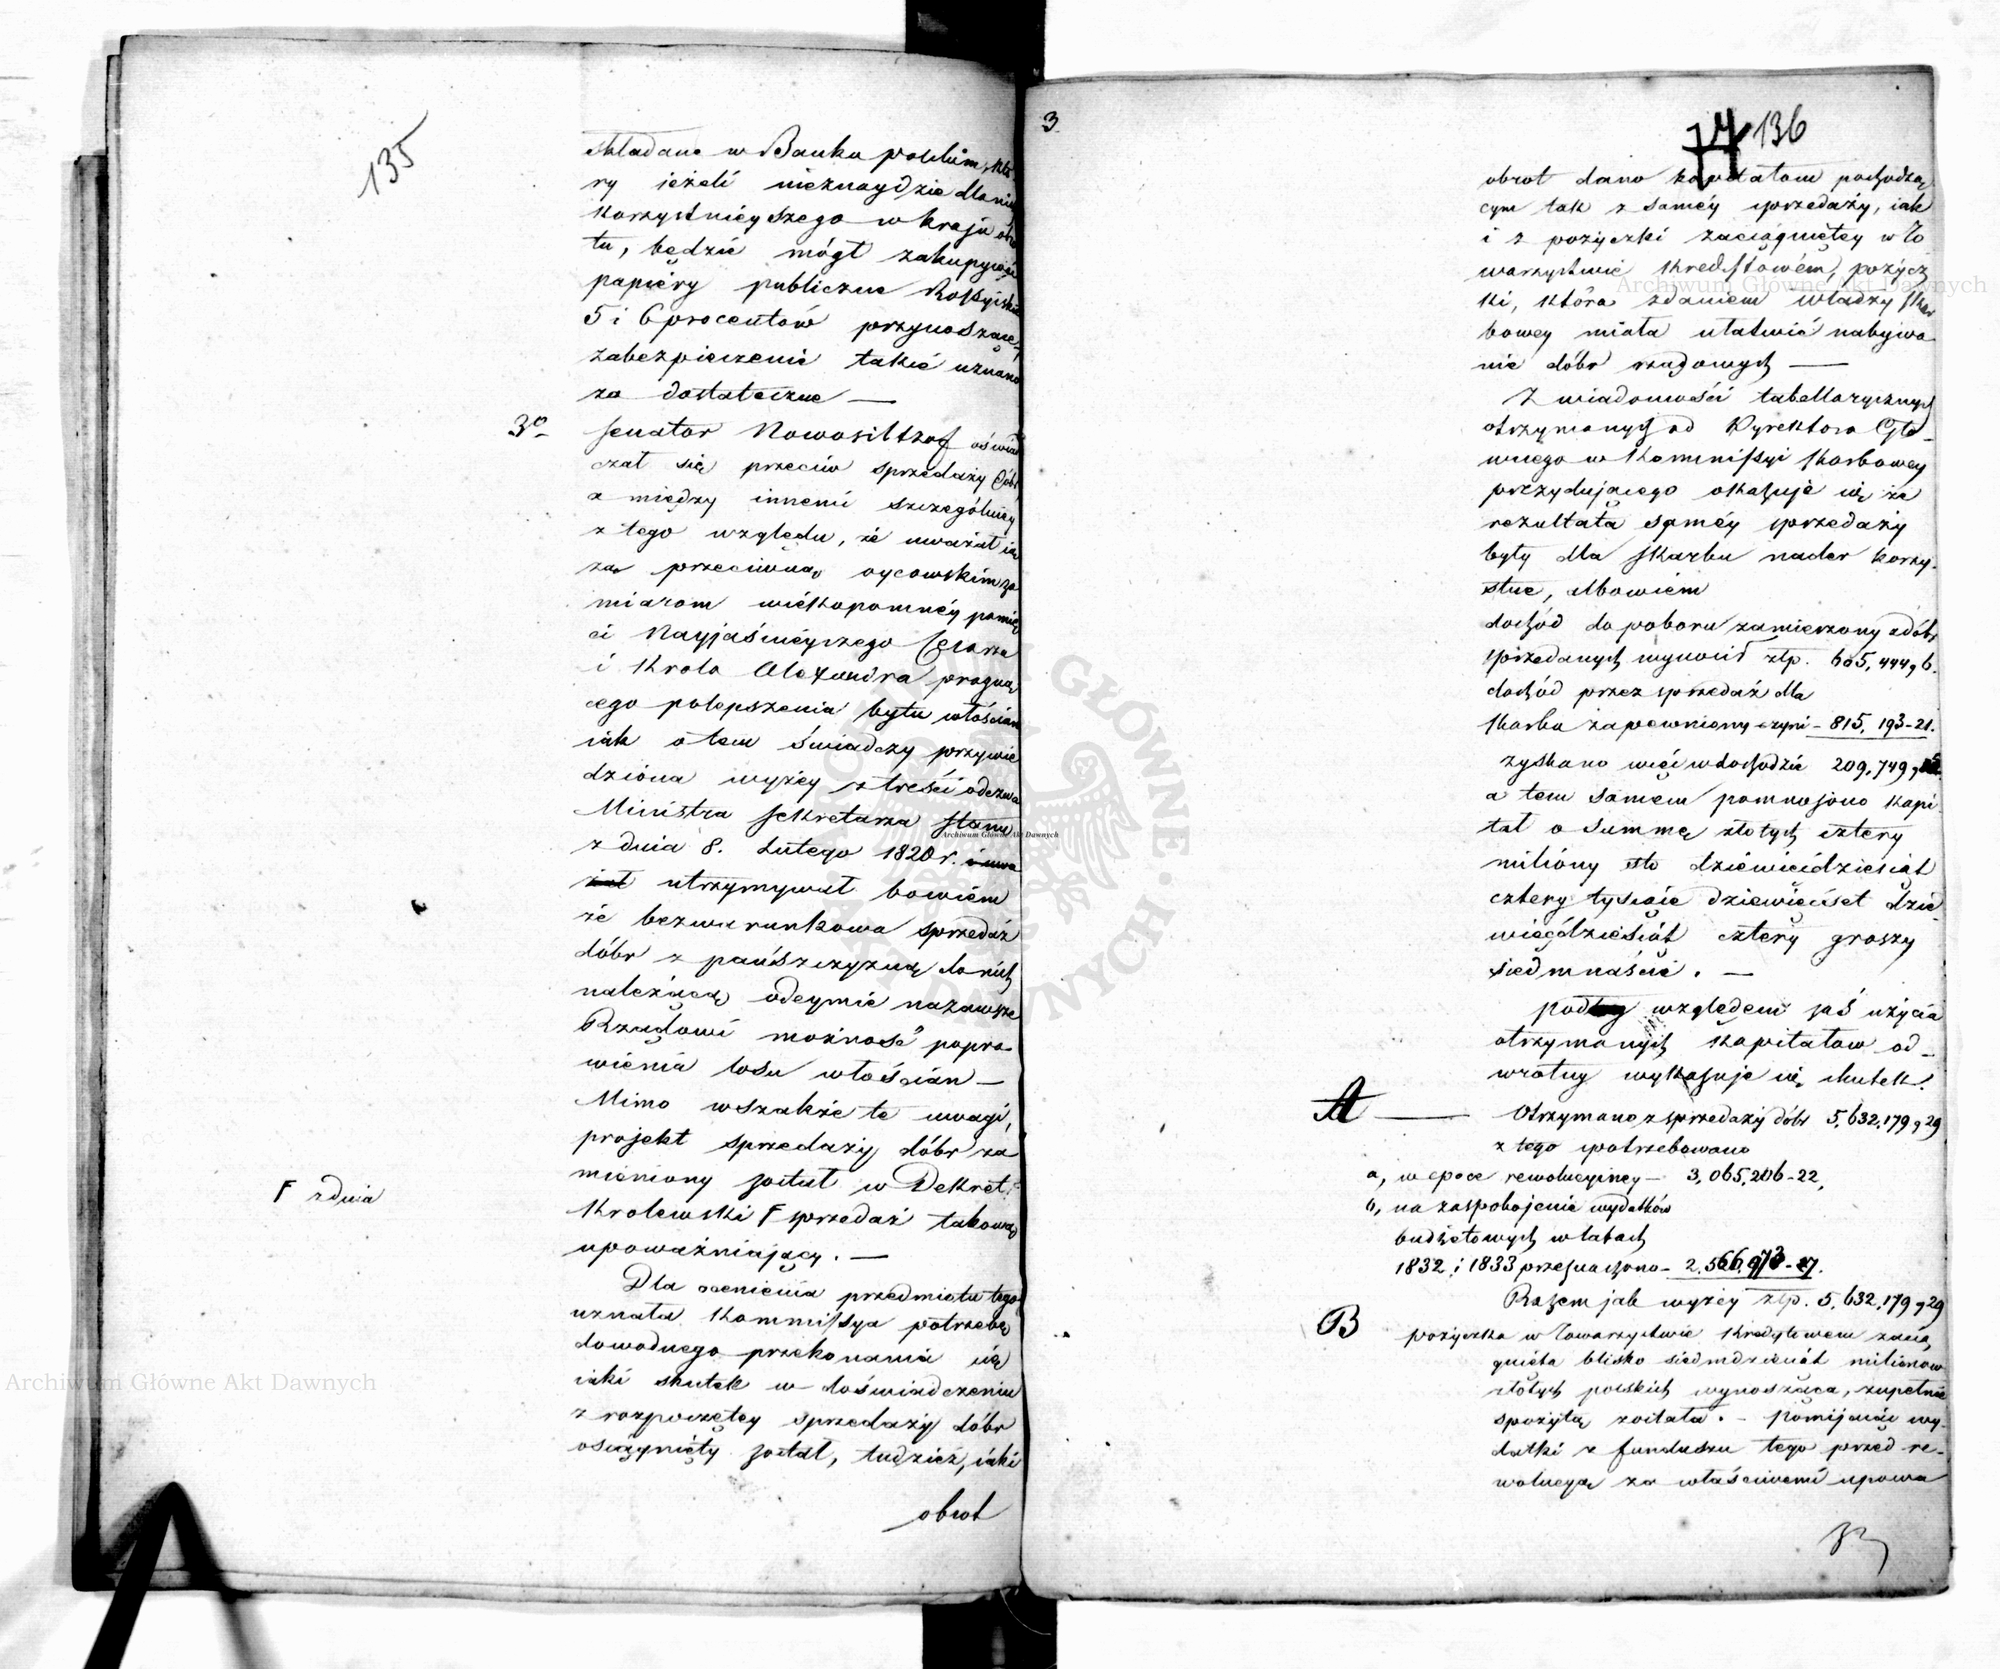 135
składane w Banku polskim, któ-
ry jeżeli nieznaydzie dla nich
korzystnieyszego w kraju obro
tu, będzie mógł zakupywać
papiéry publiczne Rossyiskie
5 i 6 procentów przynoszące,
zabezpieczenie takie uznano
za dostateczne —
3o Senator Nowosiltzof oświad
czał się przeciw sprzedaży Dóbr
a między innemi szczególniey
z tego względu, że uważał ią
za przeciwną oycowskim za
miarom wiekopomnéy pamię
ci Nayjaśnieyszego Cesarza
i Krola Alexandra pragną
cego polepszenia bytu włościan
iak o tem świadczy przywie
dziona wyżey z treści odezwa
Ministra Sekretarza Stanu
z dnia 8. Lutego 1820 r. i uwa
żał utrzymywał bowiem
że bezwarunkowa sprzedaż
dóbr z pańszczyzną do nich
należącą odeymie nazawsze
Rządowi możność popra-
wienia losu włościan —
Mimo wszakże te uwagi,
projekt sprzedaży dóbr za
mieniony został w Dekret
F z dnia
Krolewski F sprzedaż takową
upoważniający. —
Dla ocenienia przedmiotu tego
uznała Kommissya potrzebę
dowodnego przekonania się
iaki skutek w doświadczeniu
z rozpoczętey sprzedaży dóbr
osiągnięty został, tudzież, iaki
obrot
3
74 136
obrot dano kapitałom pochodzą
cym tak z saméy sprzedaży, iak
i z pożyczki zaciągniętey w To
warzystwie Kredytowém, pożycz
ki, która zdaniem władzy Skar
bowey miała ułatwić nabywa
nie dóbr rządowych —
Z wiadomości tabellarycznych
otrzymanych od Dyrektora Głó-
wnego w Kommissyi Skarbowey
prezydującego okazuje się że
rezultata saméy sprzedaży
były dla Skarbu nader korzy-
stne, albowiem
dochód do poboru zamierzony z dóbr
sprzedanych wynosił złp. 605,444, 6.
dochód przez sprzedaż dla
Skarbu zapewniony czyni - 815,193-21.
zyskano więc w dochodzie 209,749, 15.
a tem samem pomnożono kapi
tał o summę złotych cztery
miliony sto dziewiędziesiąt
cztery tysiące dziewięćset dzie
więćdziesiąt cztery groszy
siedmnaście. —
pod względem zaś użycia
otrzymanych kapitałow od-
wrotny wykazuje się skutek.
A — Otrzymano z sprzedaży dóbr 5,632,179, 29
z tego spotrzebowano
a, w epoce rewolucyiney - 3,065,206-22,
b, na zaspokojenie wydatków
budżetowych w latach
1832 i 1833 przeznaczono - 2,566,973-7.
Razem jak wyżey złp. 5,632,179, 29
B pożyczka w Towarzystwie Kredytowem zacią
gnięta blisko siedmdziesiąt milionow
złotych polskich wynosząca, zupełnie
spożytą została. - Pomijając wy-
datki z funduszu tego przed re-
wolucyą za właściwemi upowa